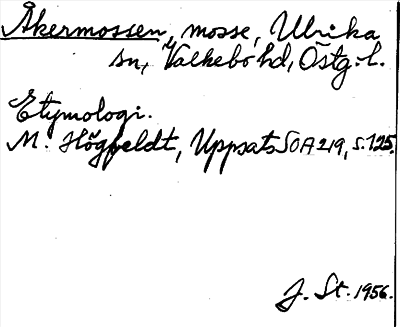 Åkermossen, mosse, Ulrika
sn, Valkebo hd, Östg.l.
Etymologi.
M. Högfeldt, Uppsats SOA 219, s. 125.
J. St. 1956.